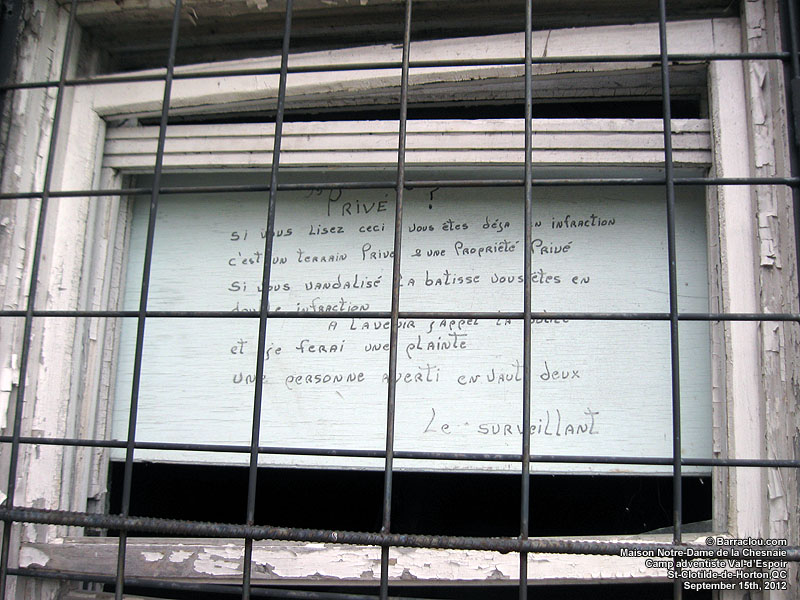 Privé !
Si vous Lisez ceci vous êtes déja en infraction
c'est un terrain Privé & une Propriété Privé
Si vous vandalisé la batisse vous êtes en
double infraction
A L'avenir j'appel la police
et je ferai une plainte
une personne averti en vaut deux
Le surveillant
© Barraclou.com
Maison Notre-Dame de la Chesnaie
Camp adventiste Val-d'Espoir
St-Clotilde-de-Horton,QC
September 15th, 2012